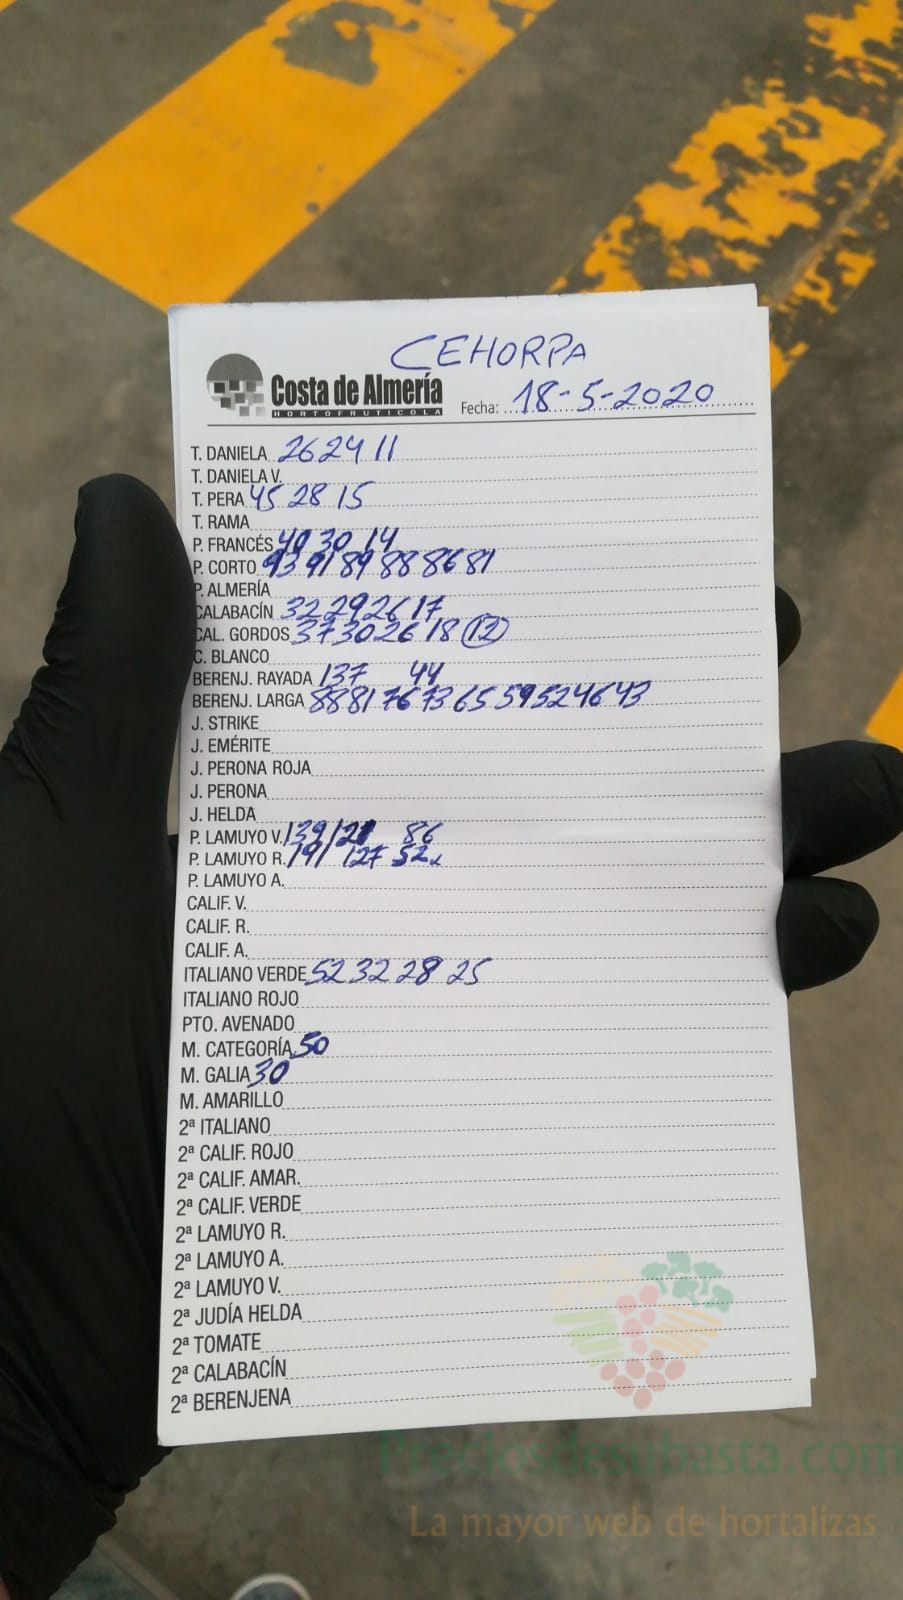 CEHORPA
Costa de Almería
HORTOFRUTICOLA
Fecha: 18-5-2020
T. DANIELA 26 24 11
T. DANIELA V.
T. PERA 45 28 15
T. RAMA
P. FRANCÉS 40 30 14
P. CORTO 93 91 89 88 86 81
P. ALMERÍA
CALABACÍN 32 29 26 17
CAL. GORDOS 37 30 26 18 (12)
C. BLANCO
BERENJ. RAYADA 137 44
BERENJ. LARGA 88 81 76 73 65 59 52 46 43
J. STRIKE
J. EMÉRITE
J. PERONA ROJA
J. PERONA
J. HELDA
P. LAMUYO V. 139 121 86
P. LAMUYO R. 191 127 52
P. LAMUYO A.
CALIF. V.
CALIF. R.
CALIF. A.
ITALIANO VERDE 52 32 28 25
ITALIANO ROJO
PTO. AVENADO
M. CATEGORÍA 50
M. GALIA 30
M. AMARILLO
2ª ITALIANO
2ª CALIF. ROJO
2ª CALIF. AMAR.
2ª CALIF. VERDE
2ª LAMUYO R.
2ª LAMUYO A.
2ª LAMUYO V.
2ª JUDÍA HELDA
2ª TOMATE
2ª CALABACÍN
2ª BERENJENA
Preciosdesubasta.com
La mayor web de hortalizas